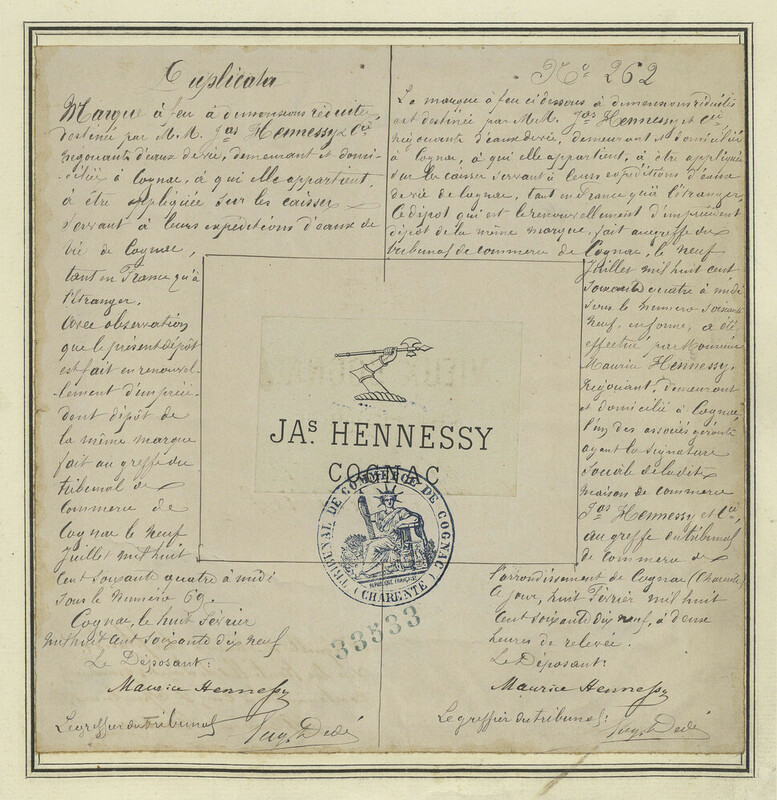 Duplicata
Marque à feu à dimensions réduites,
destinée par M.M. Jas Hennessy & Cie
négociants d'eaux de vie, demeurant et domi-
ciliés à Cognac, à qui elle appartient,
à être appliquée sur les caisses
servant à leurs expéditions d'eaux de
vie de Cognac,
tant en France qu'à
l'Etranger.
Avec observation
que le présent dépôt
est fait en renouvel-
lement d'un précé-
dent dépôt de
la même marque
fait au greffe du
tribunal de
Commerce de
Cognac le neuf
Juillet mil huit
Cent soixante quatre à midi
sous le Numéro 69.
Cognac, le huit février
mil huit cent soixante dix neuf
Le Déposant:
Maurice Hennessy
Le greffier du tribunal
Eug. Dédé
No 262
La marque à feu ci dessous à dimensions réduites
est destinée par M.M. Jas Hennessy et Cie,
négociants d'eaux de vie, demeurant et domiciliés
à Cognac, à qui elle appartient, à être appliquée
sur les caisses servant à leurs expéditions d'eaux
de vie de Cognac, tant en France qu'à l'étranger.
Ce dépôt qui est le renouvellement d'un précédent
dépôt de la même marque, fait au greffe du
tribunal de commerce de Cognac, le neuf
Juillet mil huit cent
soixante quatre à midi
sous le numéro soixante
neuf, a été
effectué par Monsieur
Maurice Hennessy,
Négociant, demeurant
et domicilié à Cognac,
l'un des associés gérants
ayant la signature
sociale de la dite
maison de commerce
Jas Hennessy et Cie,
au greffe du tribunal
de Commerce de
l'arrondissement de Cognac (Charente)
ce jour, huit Février mil huit
cent soixante dix neuf, à deux
heures de relevée.
Le Déposant:
Maurice Hennessy
Le greffier du tribunal:
Eug. Dédé
JAS HENNESSY
COGNAC
TRIBUNAL DE COMMERCE DE COGNAC
REPUBLIQUE FRANÇAISE
(CHARENTE)
33533